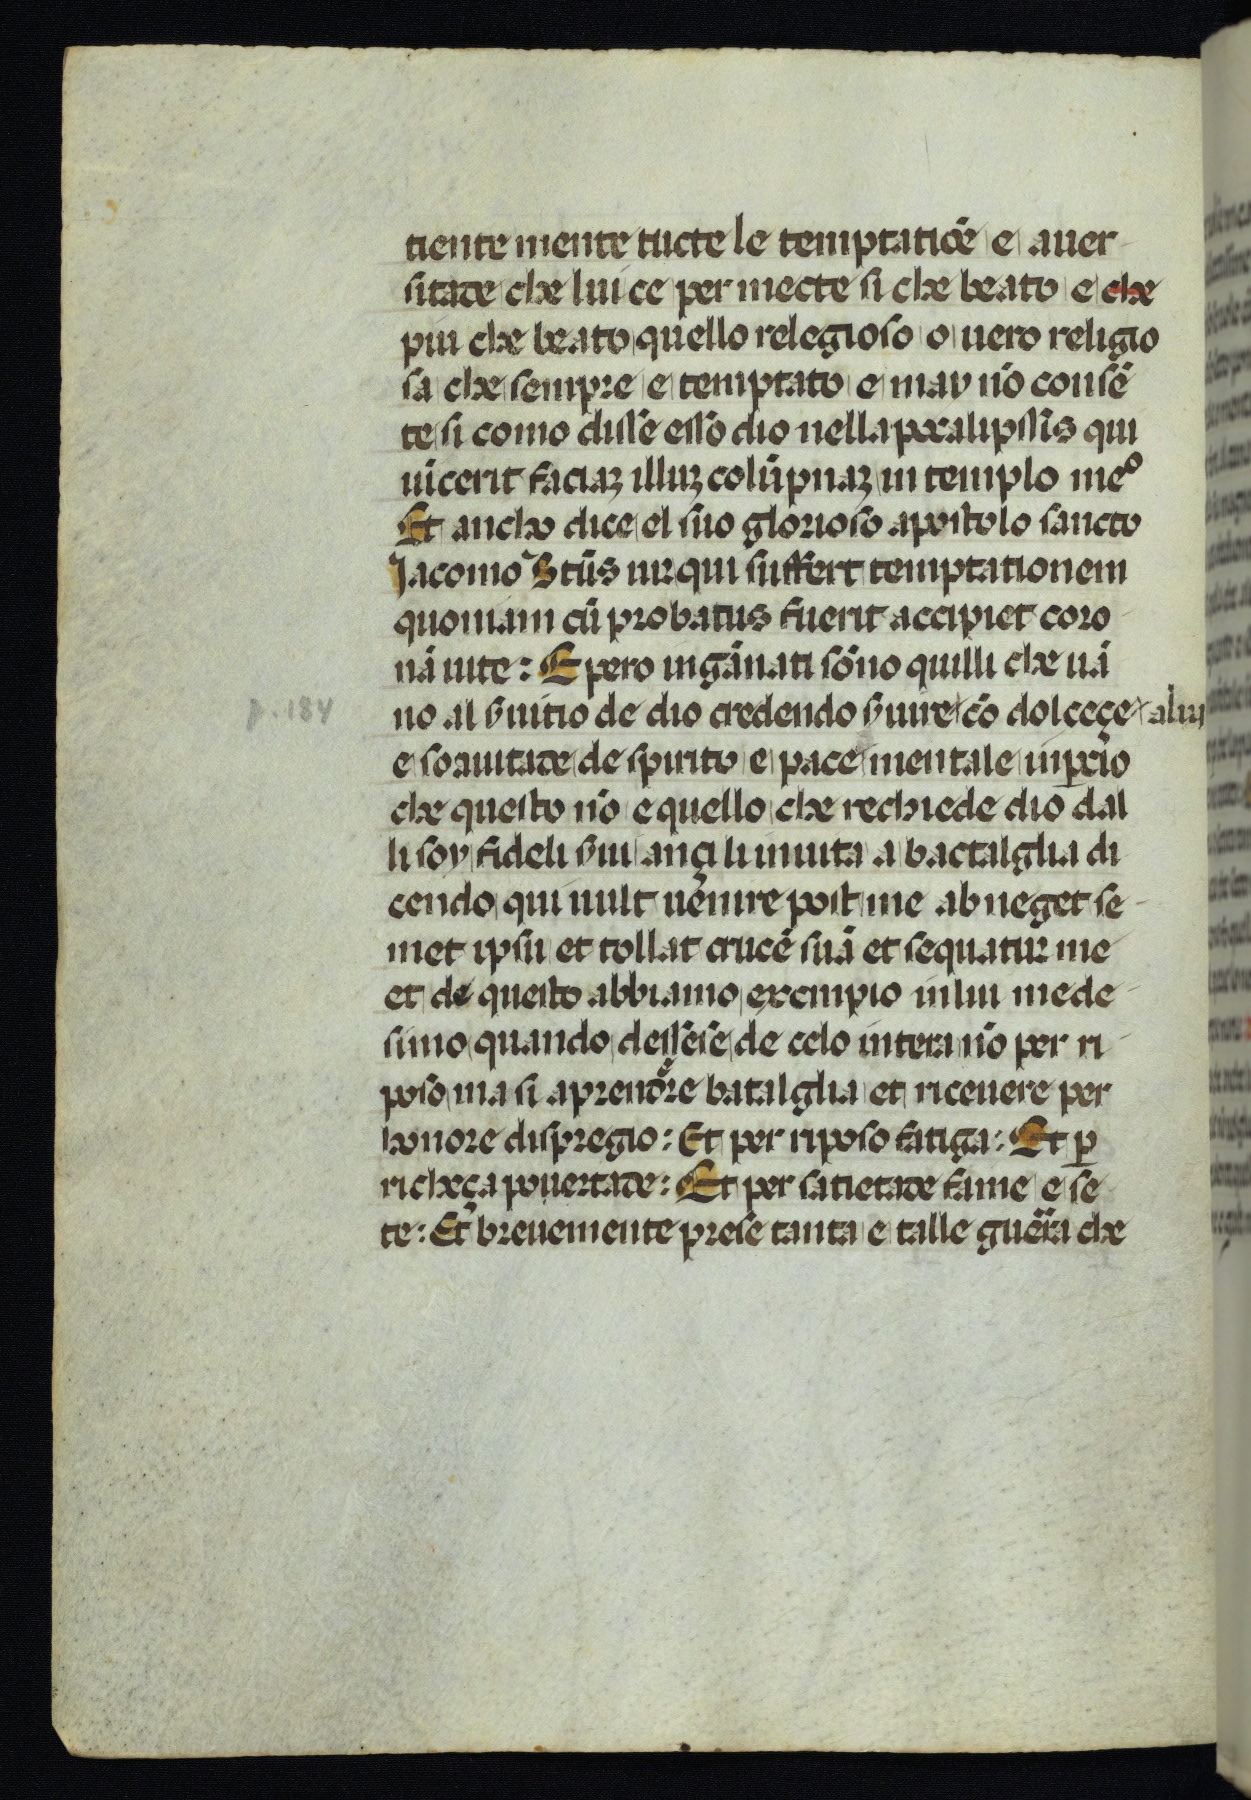 tiente mente tucte le temptatiōe e auer
sitade che lui ce per mecte si che beato e che
piu che beato quello relegioso o uero religio
sa che sempre e temptato e may nō consē
te si como disse esso dio nella pocalipssis qui
uīcerit faciaȝ illuȝ colūpnaȝ in templo meº
Et ancho dice el suo glorioso apostolo sancto
Jacomo Btūs uir qui suffert temptationem
quoniam cū probatus fuerit accipiet coro
nā uite: E pero ingānati sōno quilli che uā
p. 184
no al s̄uitio de dio credendo s̄uire cō dolceçe alui
e soauitade de spirito e pace mentale inpcio
che questo nō e quello che rechiede dio dal
li soy fideli s̄ui ançi li inuita a bactalglia di
cendo qui uult uenire post me abneget se
met ipsū et tollat crucē suā et sequatur me
et de questo abbiamo exempio in lui mede
simo quando dessese de celo in terra nō per ri
poso ma si a prendere batalglia et riceuere per
honore dispregio: Et per riposo fatiga: Et ꝑ
richeça pouertade: Et per satietade fame e se
te: Et breuemente prese tanta e talle guerra che